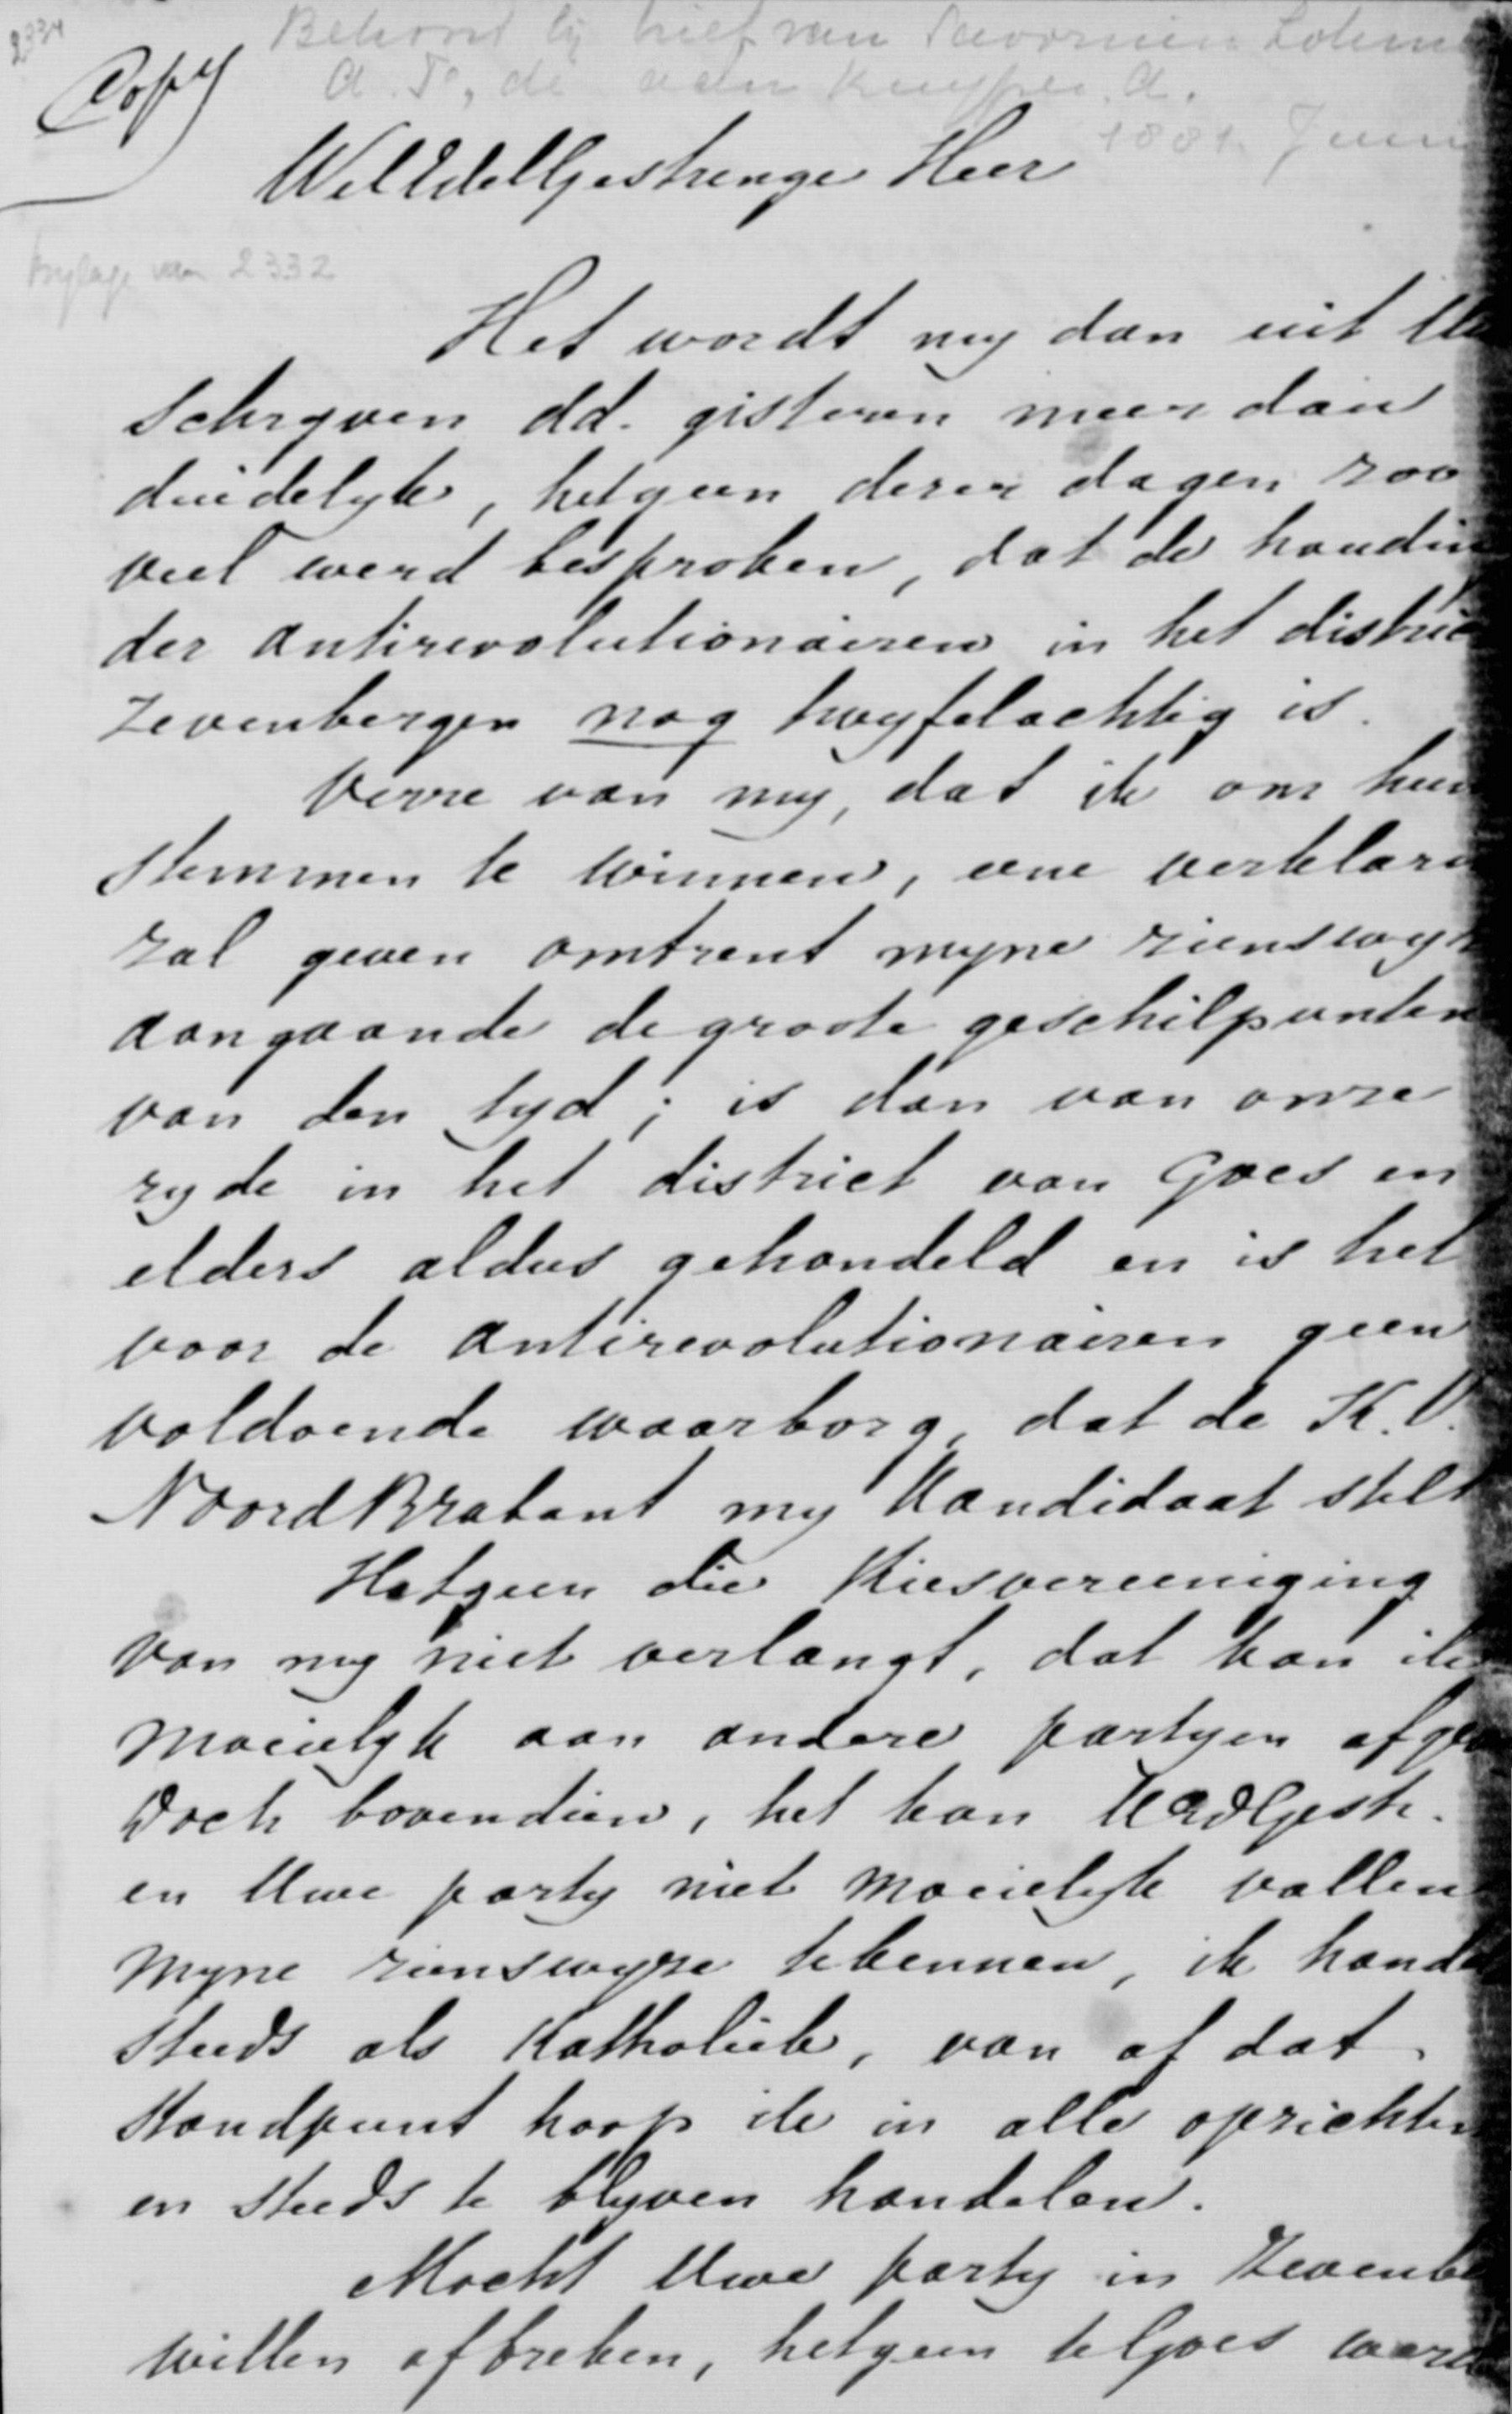 2334
Behoort bij brief van Savornin Lohman
A. F. de aan Kuyper. A.
1881. Juni
Copy
WelEdelGestrenge Heer
bijlage van 2332
Het wordt my dan uit Uw
schryven dd. gisteren meer dan
duidelyk, hetgeen dezer dagen zoo
veel werd besproken, dat de houdin
der antirevolutionairen in het distric
Zevenbergen nog twyfelachtig is.
Verre van my, dat ik om hun
stemmen te winnen, eene verklarin
zal geven omtrent myne zienswyz
aangaande de groote geschilpunten
van den tyd; is dan van onze
zyde in het district van Goes en
elders aldus gehandeld en is het
voor de antirevolutionairen geen
voldoende waarborg, dat de K. V.
NoordBrabant my Kandidaat stelt
Hetgeen die Kiesvereeniging
van my niet verlangt, dat kan ik
moeielyk aan andere partyen afge
Doch bovendien, het kan UEdGestr.
en Uwe party niet moeielyk vallen
myne zienswyze te kennen, ik hande
steeds als Katholiek, van af dat
standpunt hoop ik in alle opzichten
en steeds te blyven handelen.
Mocht Uwe party in Zevenbe
willen afbreken, hetgeen te Goes werd